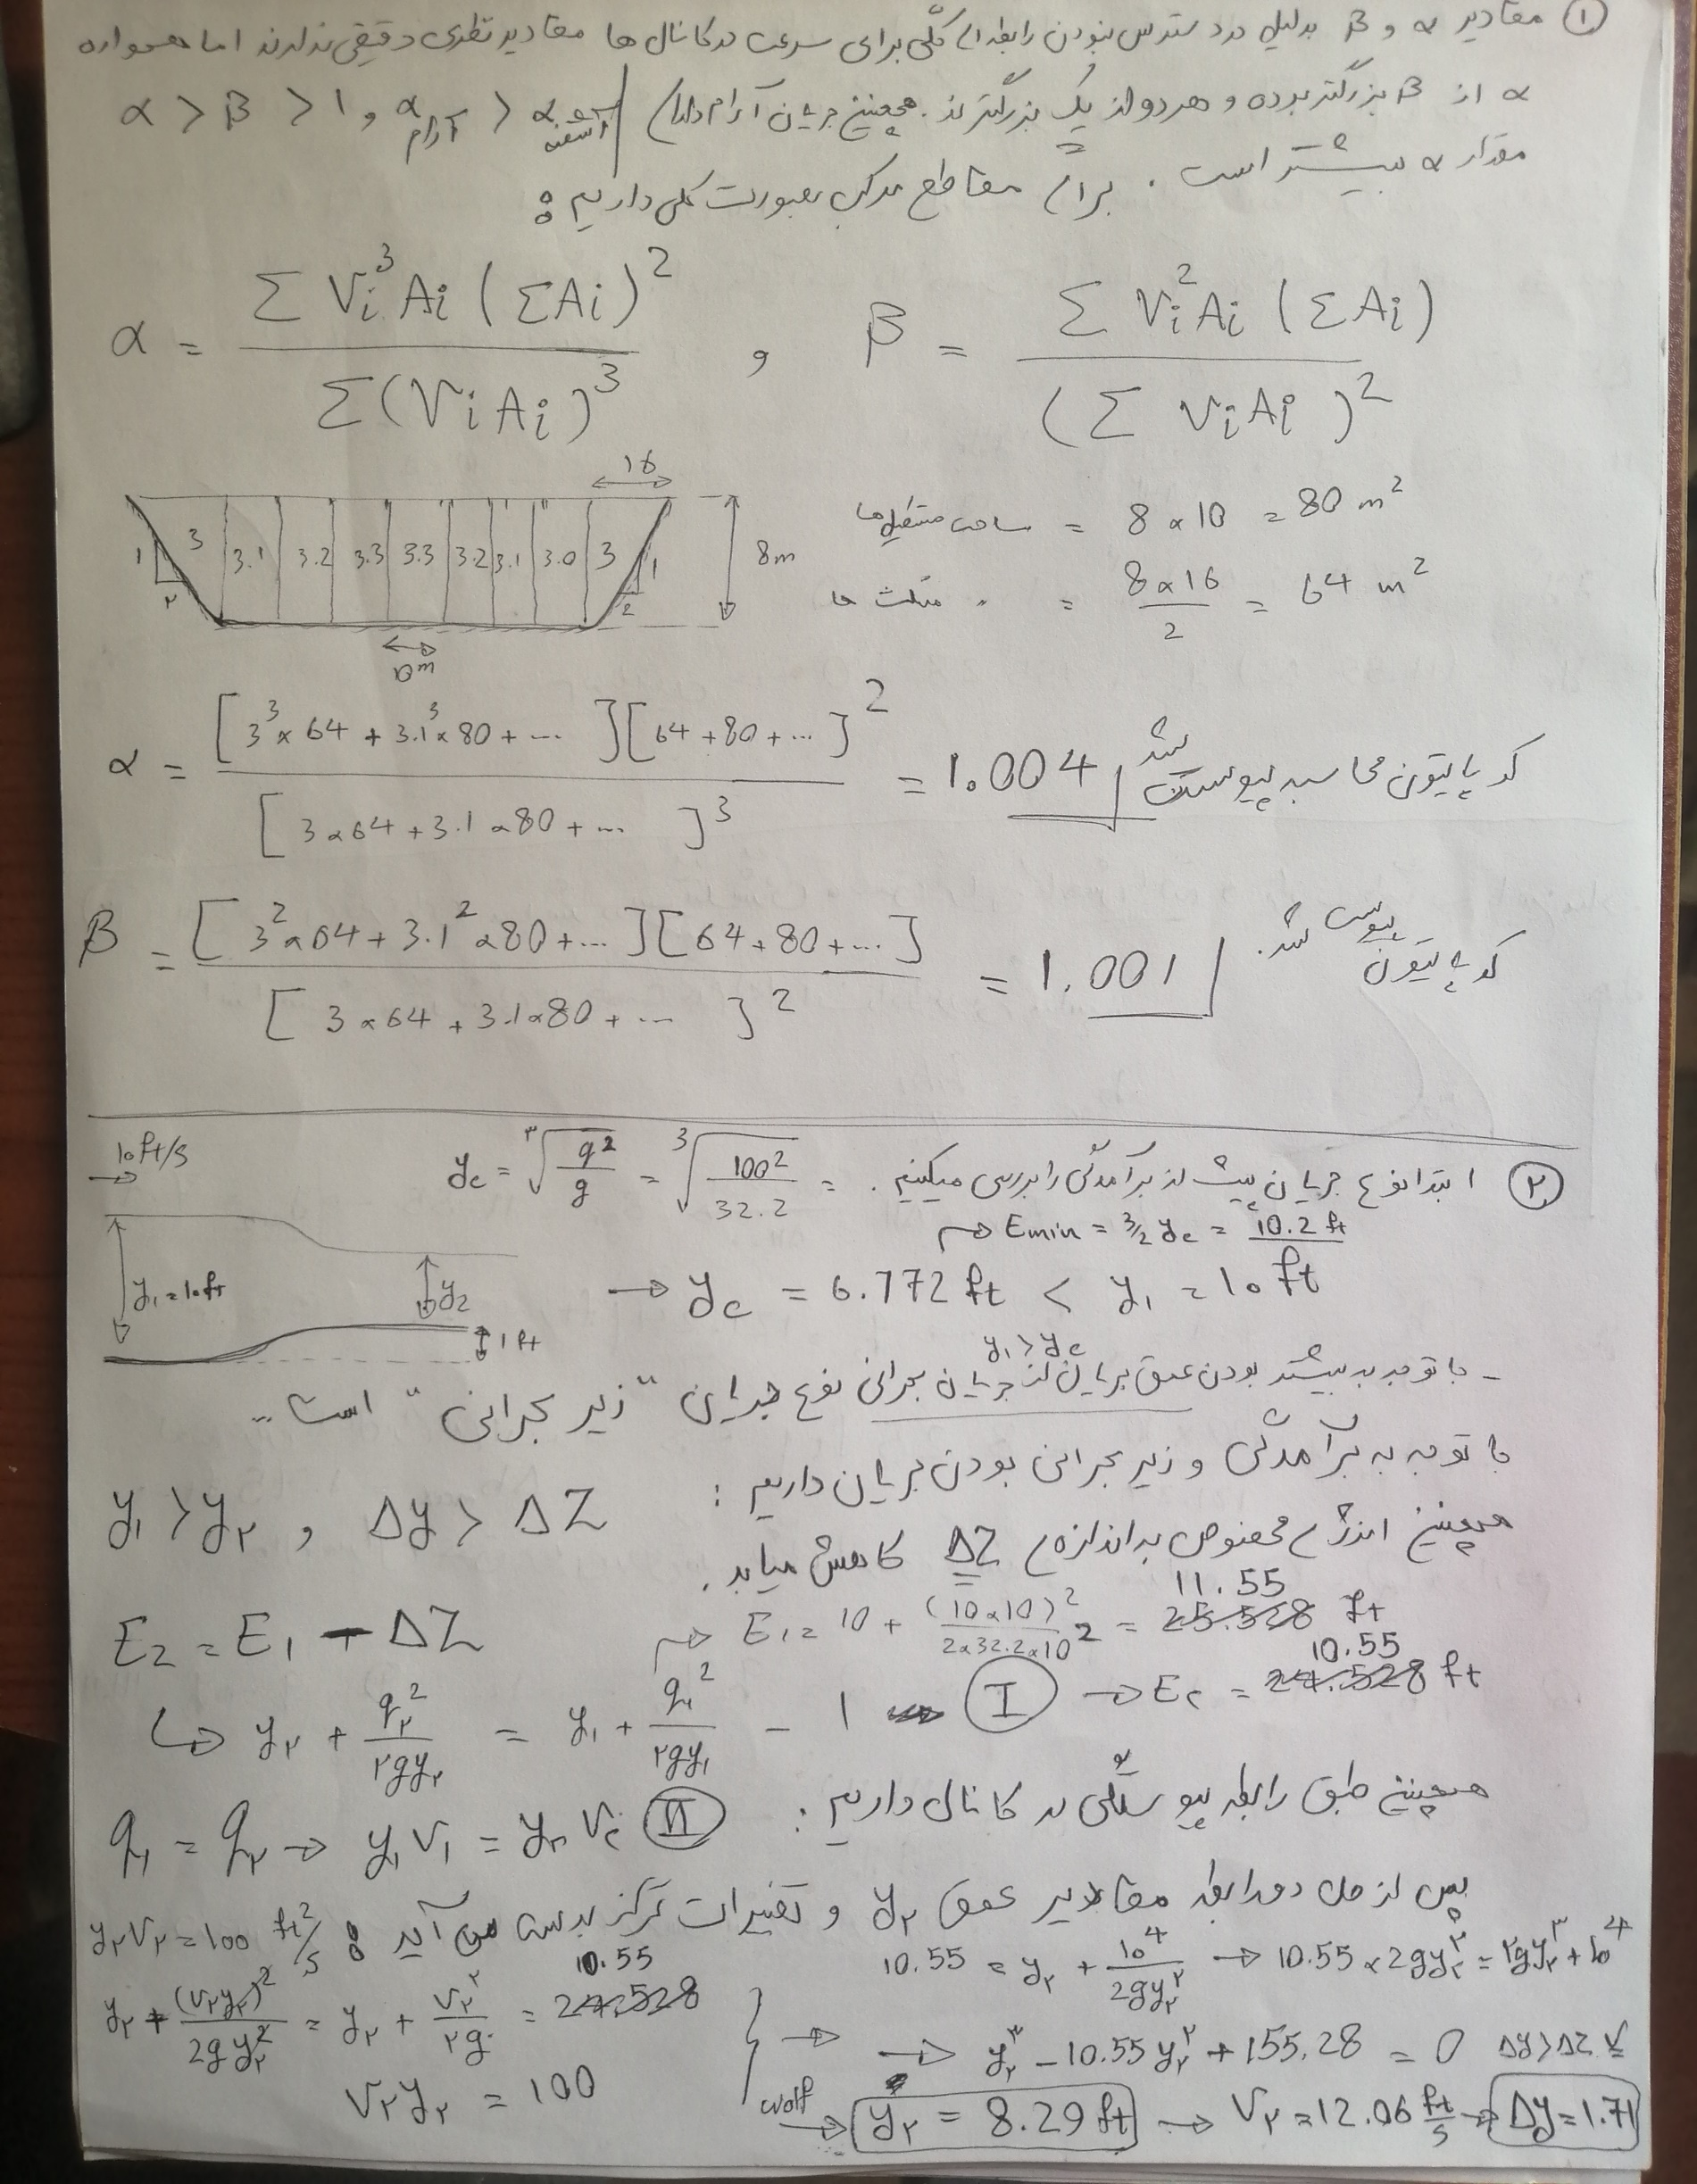 ① مقادیر α و β بدلیل در دسترس نبودن رابطه ای کلّی برای سرعت در کانال ها مقادیر نظری دقیقی ندارند اما همواره
α از β بزرگتر بوده و هر دو از یک بزرگترند. همچنین جریان آرام دارای α > β > 1 , α آرام > α آشفته
مقدار α بیشتر است . برای مقاطع مرکب بصورت کلی داریم :
α = Σ Vi³ Ai (ΣAi)² / Σ(Vi Ai)³ , β = Σ Vi² Ai (ΣAi) / (Σ Vi Ai)²
16
1 ۲ 3 3.1 3.2 3.3 3.3 3.2 3.1 3.0 3 1 2 8m
10m
مساحت مستطیل ها = 8 × 10 = 80 m²
〃 مثلث ها = 8×16 / 2 = 64 m²
α = [3³ × 64 + 3.1³ × 80 + ...][64 + 80 + ...]² / [3×64 + 3.1×80 + ...]³ = 1.004 کد پایتون محاسبه پیوست شد
β = [3² × 64 + 3.1² × 80 + ...][64 + 80 + ...] / [3×64 + 3.1×80 + ...]² = 1.001 کد پایتون پیوست شد.
② ابتدا نوع جریان پیش از برآمدگی را بررسی میکنیم .
yc = ∛(q²/g) = ∛(100²/32.2) =
→ Emin = 3/2 yc = 10.2 ft
10 ft/s
y₁ = 10 ft
y2
1 ft
→ yc = 6.772 ft < y₁ = 10 ft
y₁ > yc
- با توجه به بیشتر بودن عمق جریان از جریان بحرانی نوع جریان "زیر بحرانی" است ..
با توجه به برآمدگی و زیر بحرانی بودن جریان داریم :
y₁ > y۲ , Δy > ΔZ
همچنین انرژی مخصوص به اندازه ی ΔZ کاهش میابد .
E2 = E1 - ΔZ → E1 = 10 + (10×10)² / 2×32.2×10² = 11.55 ft
→ y۲ + q۲² / ۲gy۲ = y₁ + q₁² / ۲gy₁ - 1 Ⓘ → E۲ = 10.55 ft
همچنین طبق رابطه پیوستگی در کانال داریم :
q₁ = q۲ → y₁V₁ = y۲V۲ Ⓘ Ⓘ
پس از حل دو رابطه مقادیر عمق y۲ و تغییرات تراز بدست می آید :
y۲V۲ = 100 ft²/s
y۲ + (V۲y۲)² / 2gy۲² = y۲ + V۲² / ۲g = 10.55
V۲y۲ = 100
10.55 = y۲ + 10⁴ / 2gy۲² → 10.55 × 2gy۲² = ۲gy۲³ + 10⁴
→ y۲³ - 10.55 y۲² + 155.28 = 0 Δy > ΔZ ✓
wolf → y۲ = 8.29 ft → V۲ = 12.06 ft/s → Δy = 1.71